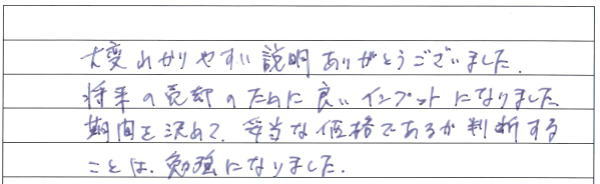 大変わかりやすい説明ありがとうございました.
将来の売却のために良いインプットになりました
期間を決めて、妥当な価格であるか判断する
ことは、勉強になりました.